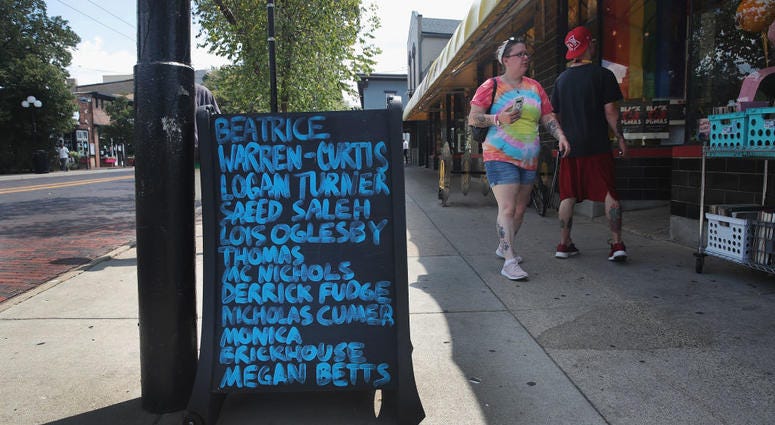 BEATRICE
WARREN-CURTIS
LOGAN TURNER
SAEED SALEH
LOIS OGLESBY
THOMAS
MC NICHOLS
DERRICK FUDGE
NICHOLAS CUMER
MONICA
BRICKHOUSE
MEGAN BETTS